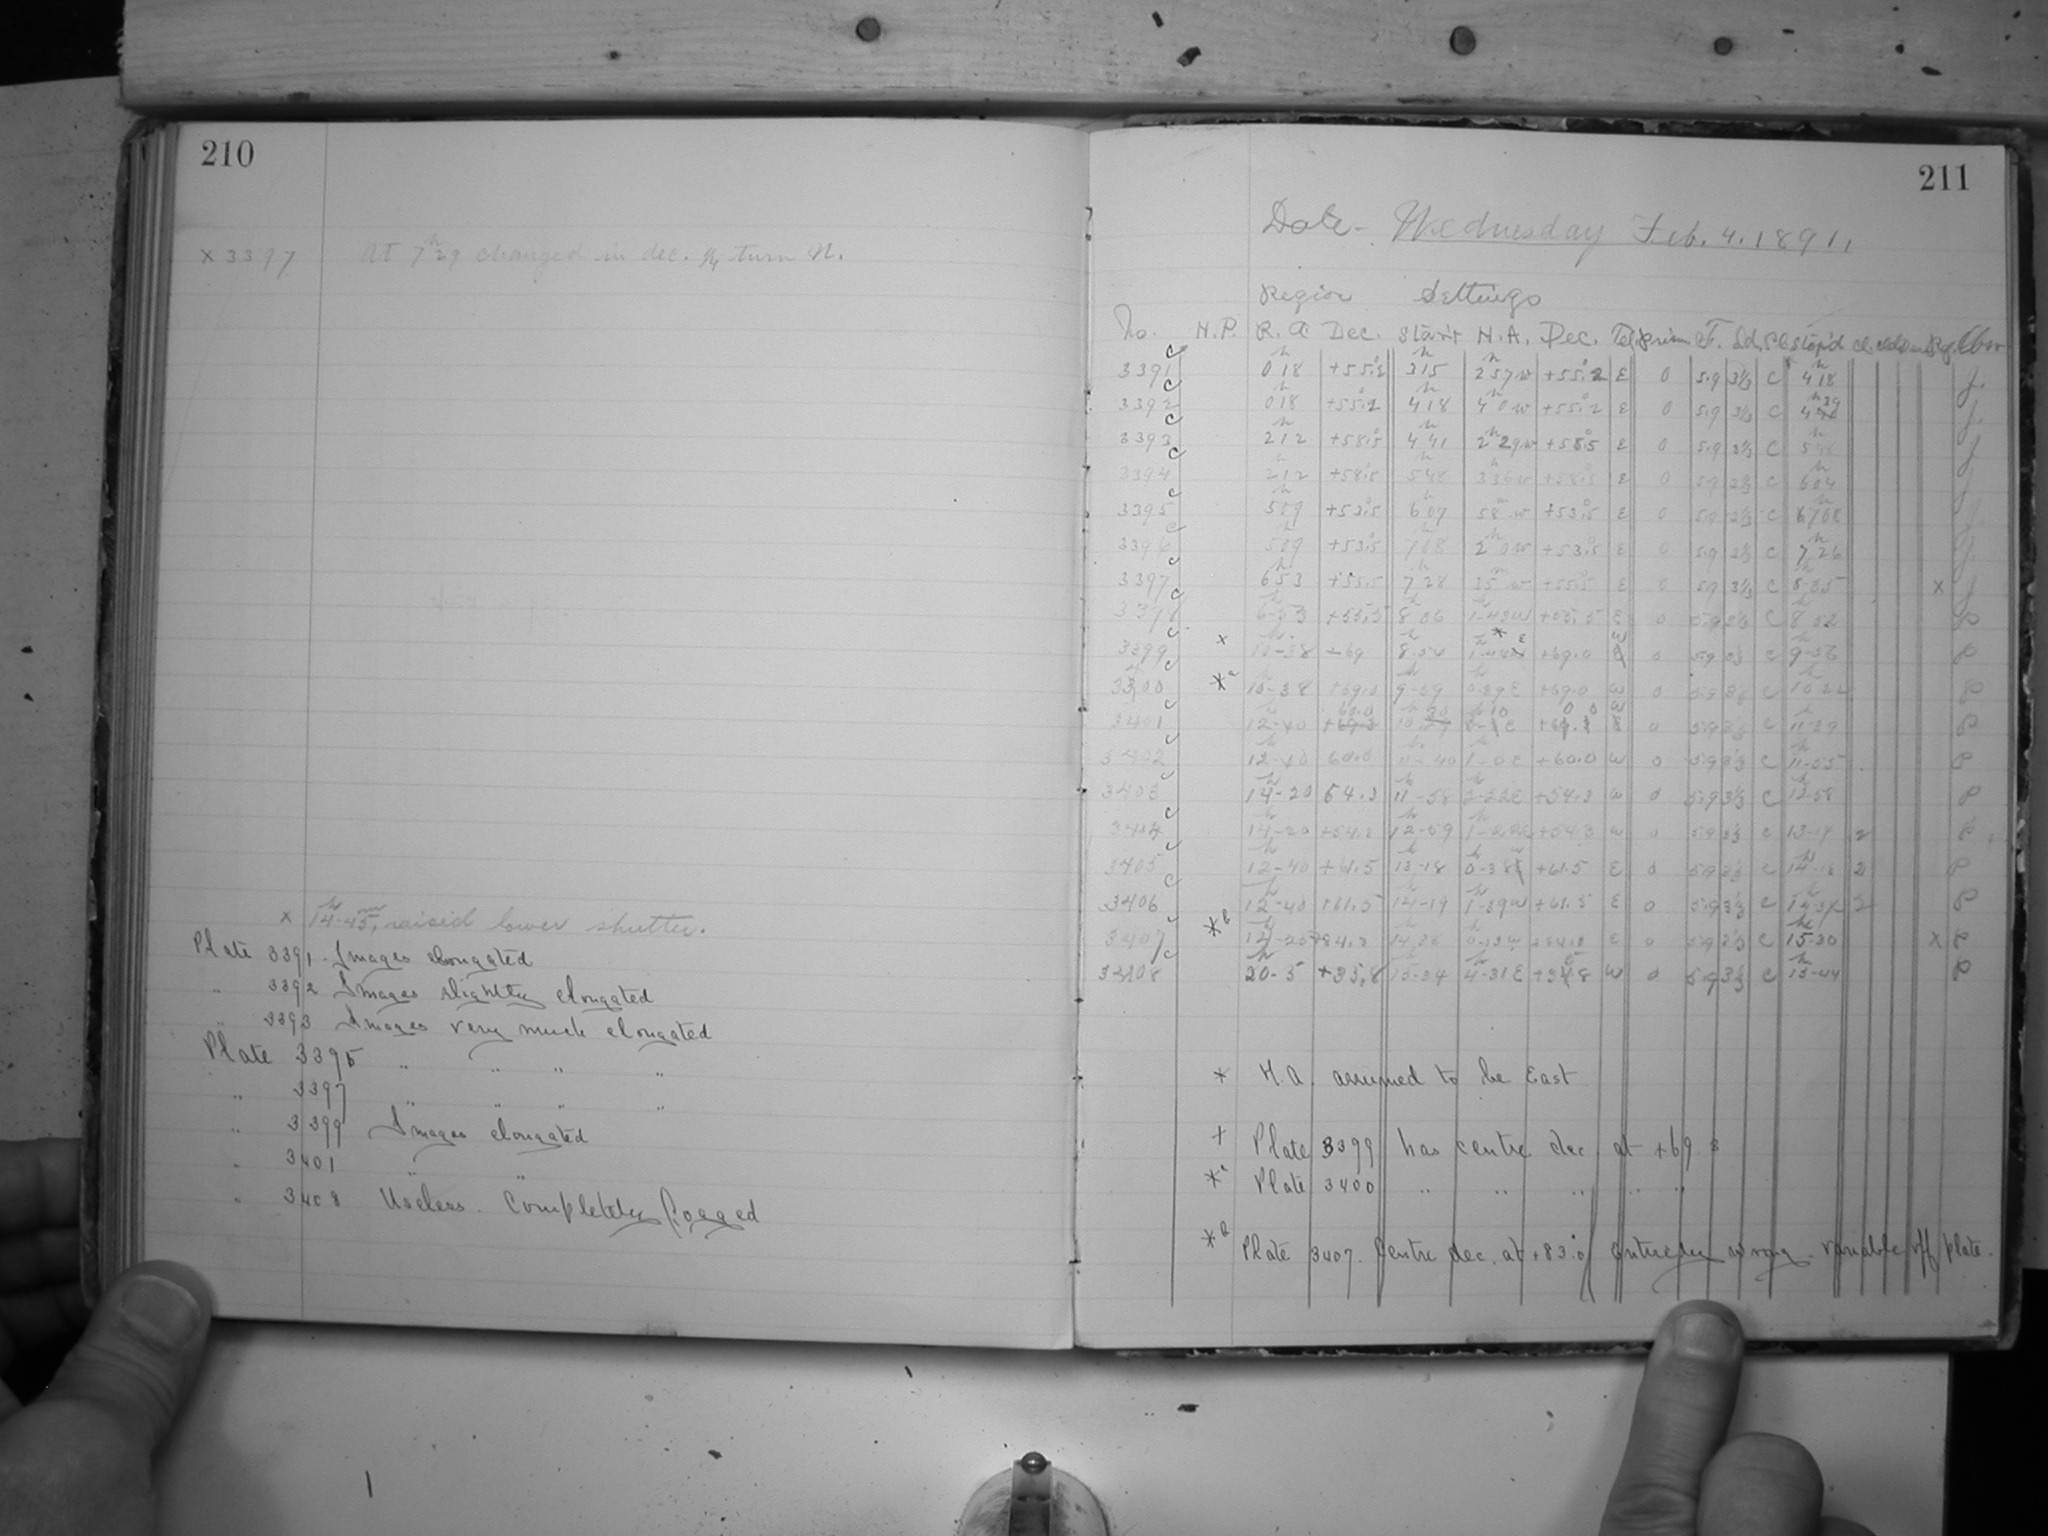 210
x 3397 At 7h 29 changed in dec. 1/4 turn N.
x 14h-45m, raised lower shutter.
Plate 3391. Images elongated
" 3392 Images slightly elongated
" 3393 Images very much elongated
Plate 3395 " " " "
" 3397 " " " "
" 3399 Images elongated
" 3401 " "
" 3408 Useless. Completely fogged
211
Date - Wednesday Feb. 4. 1891.
Region Settings
No. H.P. R.A Dec. Start H.A. Dec. Tel Prism F. Sd. Cl. stop'd Obsr
3391 c 0h18 +55.2 3h15 2h57w +55.2 E 0 5.9 3 1/3 C 4h18 J.
3392 c 0h18 +55.2 4h18 4h0w +55.2 E 0 5.9 3 1/3 C 4h39 J.
3393 c 2h12 +58.5 4h41 2h29w +58.5 E 0 5.9 3 1/3 C 5h48 J
3394 c 2h12 +58.5 5h48 3h36w +58.5 E 0 5.9 3 1/3 C 6h04 J
3395 c 5h09 +53.5 6h07 58m w +53.5 E 0 5.9 3 1/3 C 708 J.
3396 c 5h09 +53.5 7h08 2h0w +53.5 E 0 5.9 3 1/3 C 7h26 J.
3397 c 6h53 +55.5 7h28 35m w +55.5 E 0 5.9 3 1/3 C 8h-05 x J
3398 c 6h-53 +55.5 8h06 +55.5 E 0 5.9 3 1/3 C 8h22 P
3399 c x 10h-38 +69 8h-54 * E +69.0 W 0 5.9 3 1/3 C 9h-56 P
3400 c *a 10h-38 +69.0 9h-59 0h-39E +69.0 W 0 5.9 3 1/3 C 10h22 P
3401 c 12h-40 60.0 10h30 +60.0 W 0 5.9 3 1/3 C 11h-39 P
3402 12h-40 60.0 11h-40 1h-0E +60.0 W 0 5.9 3 1/3 C 11h-55 P
3403 c 14h-20 54.3 11h-58 2h-22E +54.3 W 0 5.9 3 1/3 C 12h-58 P
3404 c 14h-20 +54.3 12h-59 1h-22E +54.3 W 0 5.9 3 1/3 C 13-17 2 P
3405 c 12h-40 +61.5 13h-18 0h-38w +61.5 E 0 5.9 3 1/3 C 14h-18 2 P
3406 c 12h-40 +61.5 14h-19 1h-39w +61.5 E 0 5.9 3 1/3 C 14h-34 2 P
3407 c *b +84.3 14h-36 E 0 5.9 3 1/3 C 15h-30 x P
3408 c 20h-5 +35.8 15h-34 4h-31E +35.8 W 0 5.9 3 1/3 C 15h-44 P
* H.A. assumed to be East
+ Plate 3399 has centre dec. at +69.3
*a Plate 3400 " " " " "
*b Plate 3407. Centre dec. at +83.0 entirely wrong - variable off plate.